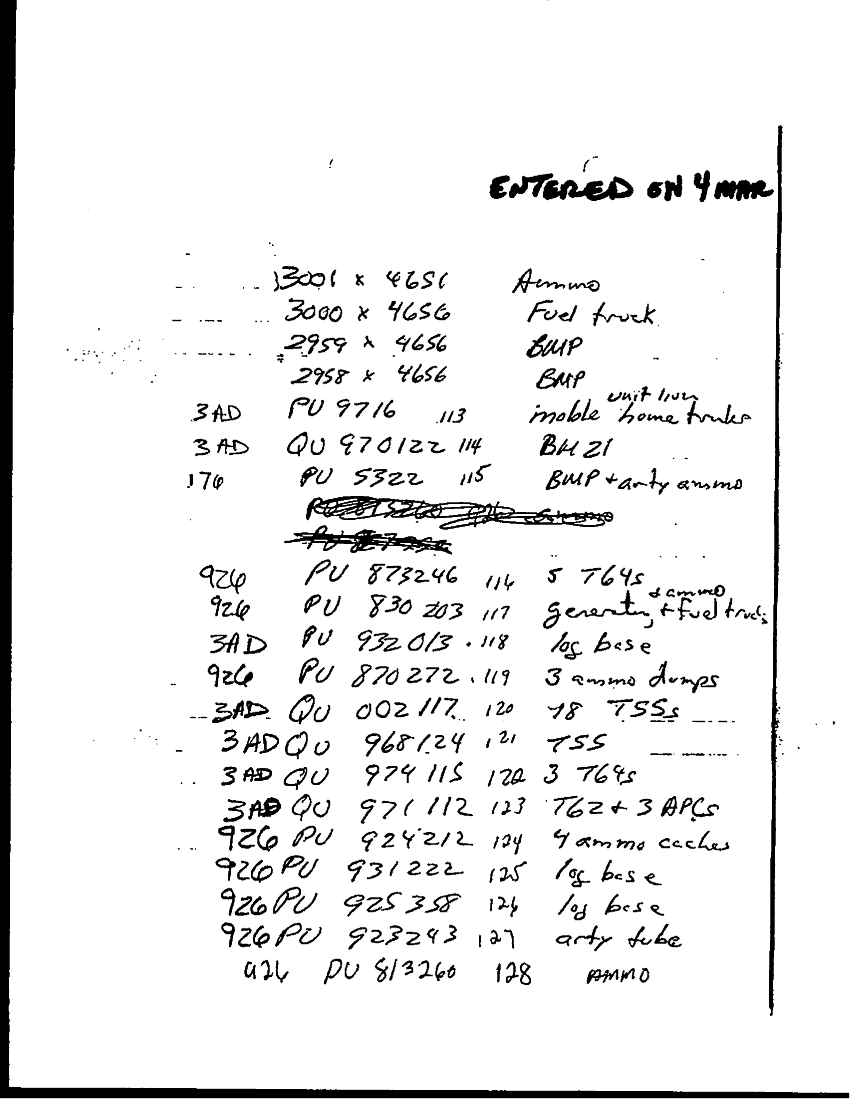 ENTERED ON 4 MAR
3001 x 4656 Ammo
3000 x 4656 Fuel truck
2959 x 4656 BMP
2958 x 4656 BMP
unit
3AD PU 9716 113 moble home trucks
3AD QU 970122 114 BM 21
176 PU 5322 115 BMP + arty ammo
926 PU 873246 116 5 T64s
+ ammo
926 PU 830203 117 + fuel trucks
3AD PU 932013 118 log base
926 PU 870272 119 3 ammo dumps
3AD QU 002117 120 18 T55s
3AD QU 968124 121 T55
3AD QU 974115 122 3 T64s
3AD QU 971112 123 T62 + 3 APCs
926 PU 924212 124 4 ammo caches
926 PU 931222 125 log base
926 PU 925358 126 log base
926 PU 923243 127 arty tube
926 PU 813260 128 AMMO